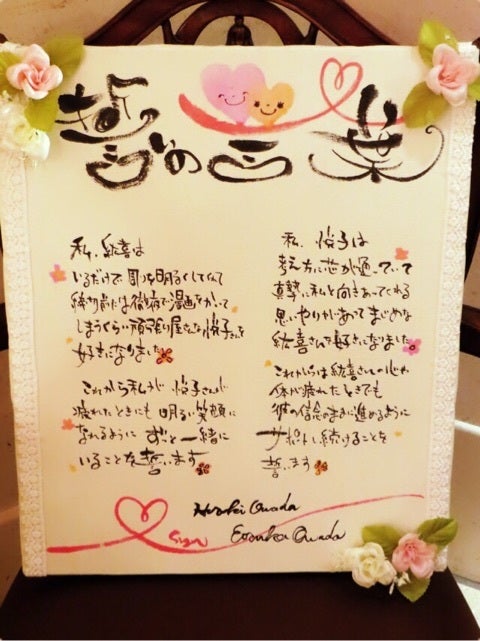 誓いの言葉
私、紘喜は
いるだけで周りを明るくしてくれて
締切前には徹夜で漫画をかいて
しまうくらい頑張り屋さんな悦子さんを
好きになりました
これから私が 悦子さんが
疲れたときにも 明るい笑顔に
なれるように ずっと一緒に
いることを誓います
私、悦子は
考え方に芯が通っていて
真摯に私と向きあってくれる
思いやりがあってまじめな
紘喜さんを好きになりました。
これからは紘喜さんの心や
体が疲れたときでも
彼の信念のままに進めるように
サポートし続けることを
誓います
Hiroki Owada
Sign Etsuko Owada